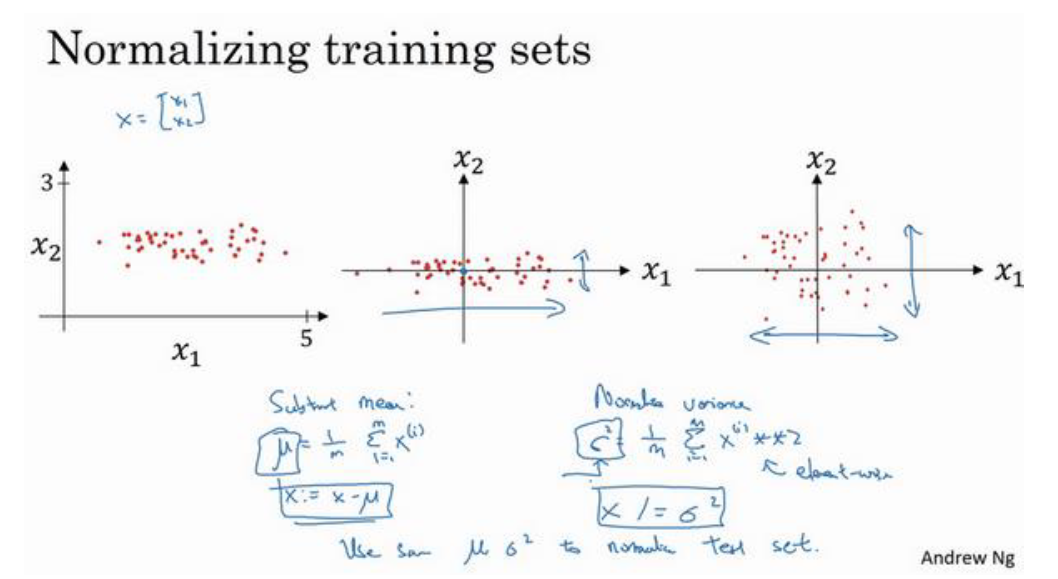 Normalizing training sets
x = [x₁ x₂]
3
x₂
x₁
5
x₂
x₁
x₂
x₁
Subtract mean:
μ = 1/m Σᵢ₌₁ᵐ x⁽ⁱ⁾
x := x - μ
Normalize variance
σ² = 1/m Σᵢ₌₁ᵐ x⁽ⁱ⁾ **2
element-wise
x /= σ²
Use same μ σ² to normalize test set.
Andrew Ng